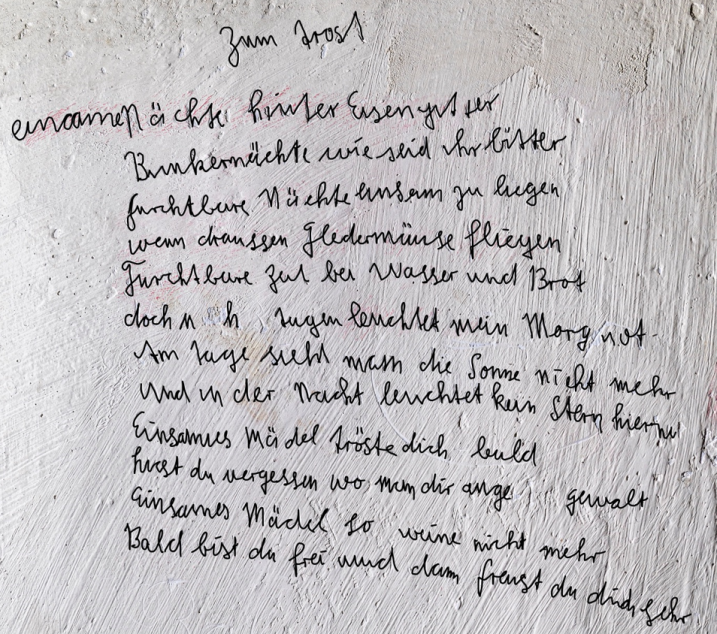 Zum Trost
einsame Nächte hinter Eisengitter
Bunkernächte wie seid ihr bitter
furchtbare Nächte einsam zu liegen
wenn draussen Fledermäuse fliegen
Furchtbare Zeit bei Wasser und Brot
doch n h tagen leuchtet mein Morg not.
Am Tage sieht mann die Sonne nicht mehr
und in der Nacht leuchtet kein Stern hier
Einsames Mädel tröste dich bald
hast du vergessen wo man dir ange gewalt
Einsames Mädel so weine nicht mehr
Bald bist du frei und dann freust du dich sehr